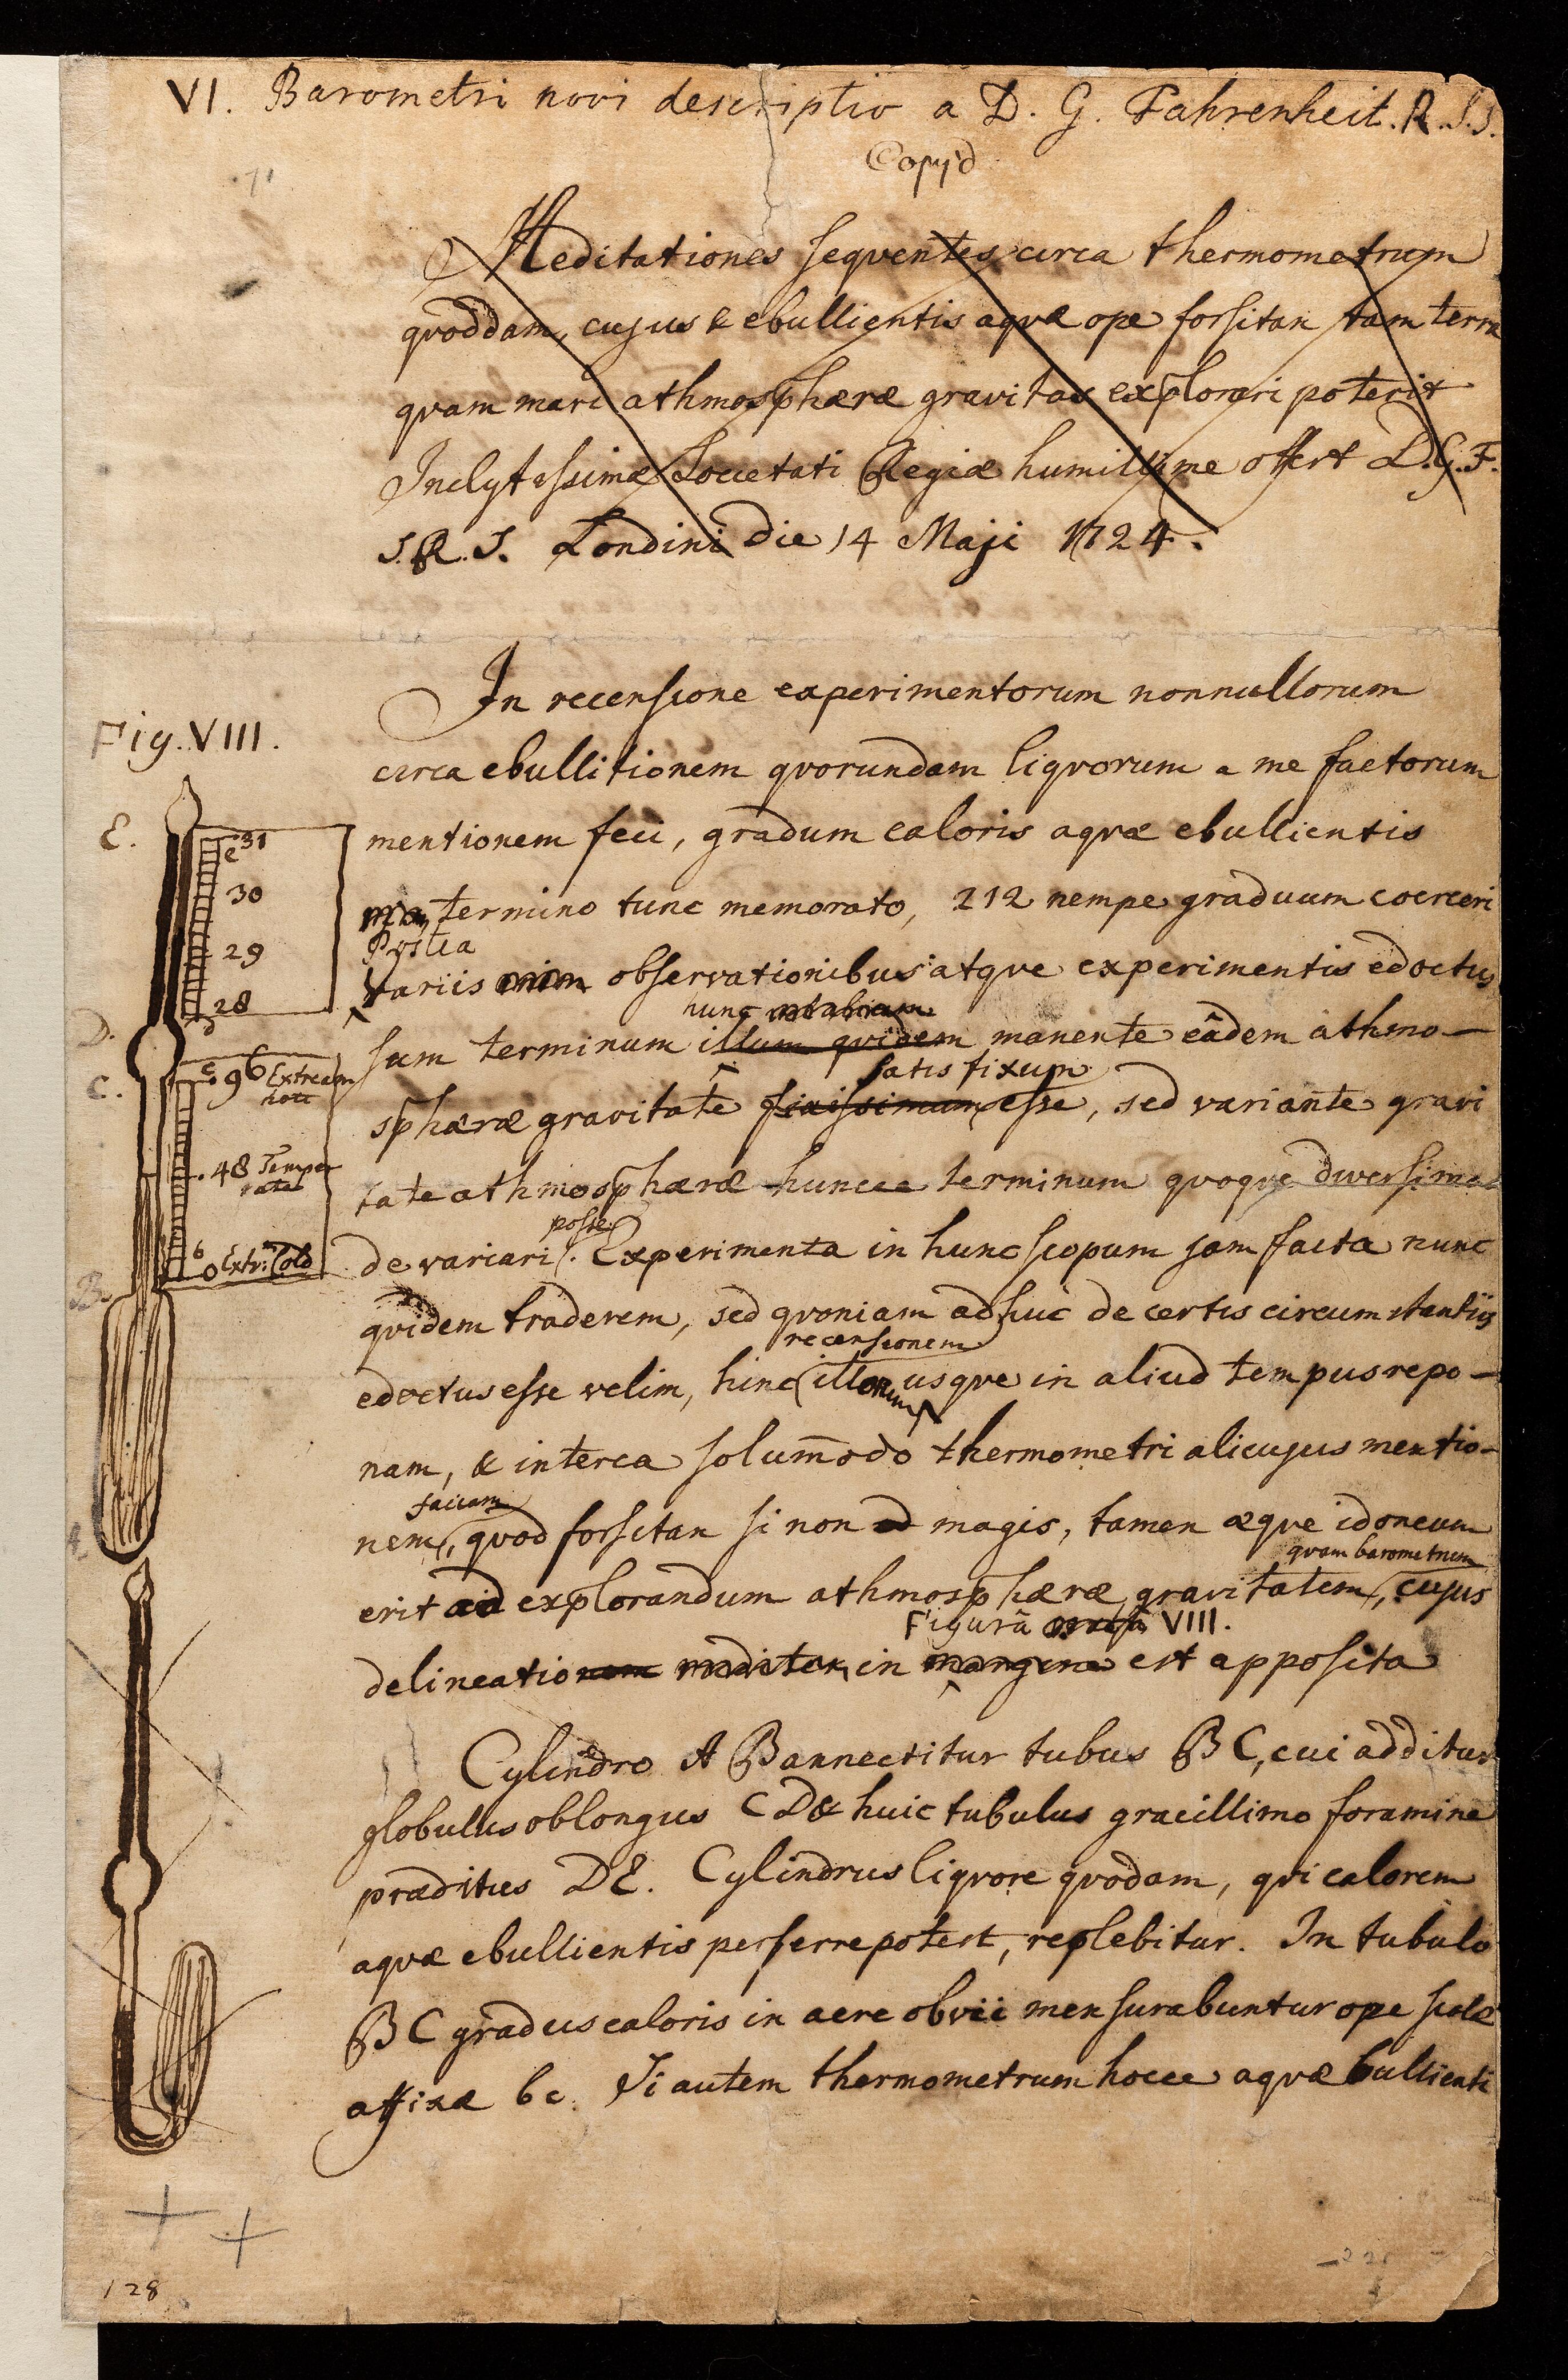 VI. Barometri novi descriptio a D. G. Fahrenheit. R.S.S.
Copy'd
Meditationes sequentes circa thermometrum
quoddam, cujus & ebullientis aquæ ope forsitan tam terra
quam mari athmosphæræ gravitas explorari poterit
Inclytissimæ Societati Regiæ humillime offert D.G.F.
S.R.S. Londini die 14 Maji 1724.
In recensione experimentorum nonnullorum
Fig. VIII.
circa ebullitionem quorundam liquorum a me factorum
E.
mentionem feci, gradum caloris aquæ ebullientis
31
e
30
29
28
D.
termino tunc memorato, 212 nempe graduum coerceri
Postea
variis observationibus atque experimentis edoctus
hunc
sum terminum illum quidem manente eâdem athmo-
satis fixum
sphæræ gravitate fixissimum esse, sed variante gravi
C.
c 96 Extream hott
48 Temperate
b 0 Extr: Cold
B.
tate athmosphæræ huncce terminum quoque diversimo
posse
de variari. Experimenta in hunc scopum jam facta nunc
quidem traderem, sed quoniam adhuc de certis circumstantiis
recensionem
edoctus esse velim, hinc illorum usque in aliud tempus repo-
nam, & interea solum̄odo thermometri alicujus mentio-
faciam
nem, quod forsitan si non ad magis, tamen æque idoneum
quam barometrum
erit ad explorandum athmosphæræ gravitatem, cujus
Figurâ VIII.
delineationem in margine est apposita
Cylindro AB annectitur tubus BC, cui additur
globulus oblongus CD & huic tubulus gracillimo foramine
præditus DE. Cylindrus liquore quodam, qui calorem
aquæ ebullientis perferre potest, replebitur. In tubulo
BC gradus caloris in aere obvii mensurabuntur ope scalæ
affixæ bc. Si autem thermometrum hocce aquæ bullienti
128